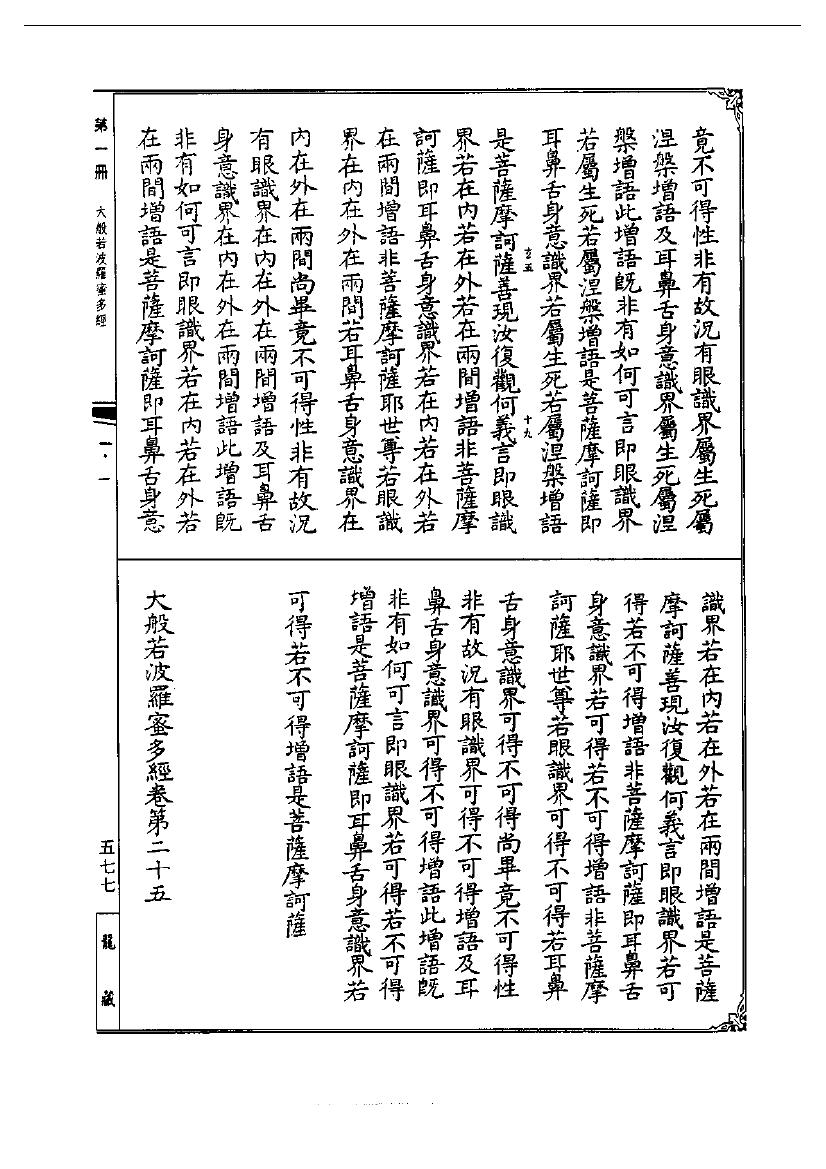 竟不可得性非有故況有眼識界屬生死屬
涅槃增語及耳鼻舌身意識界屬生死屬涅
槃增語此增語既非有如何可言即眼識界
若屬生死若屬涅槃增語是菩薩摩訶薩即
耳鼻舌身意識界若屬生死若屬涅槃增語
玄五
十九
是菩薩摩訶薩善現汝復觀何義言即眼識
界若在內若在外若在兩間增語非菩薩摩
訶薩即耳鼻舌身意識界若在內若在外若
在兩間增語非菩薩摩訶薩耶世尊若眼識
界在內在外在兩間若耳鼻舌身意識界在
內在外在兩間尚畢竟不可得性非有故況
有眼識界在內在外在兩間增語及耳鼻舌
身意識界在內在外在兩間增語此增語既
非有如何可言即眼識界若在內若在外若
在兩間增語是菩薩摩訶薩即耳鼻舌身意
識界若在內若在外若在兩間增語是菩薩
摩訶薩善現汝復觀何義言即眼識界若可
得若不可得增語非菩薩摩訶薩即耳鼻舌
身意識界若可得若不可得增語非菩薩摩
訶薩耶世尊若眼識界可得不可得若耳鼻
舌身意識界可得不可得尚畢竟不可得性
非有故況有眼識界可得不可得增語及耳
鼻舌身意識界可得不可得增語此增語既
非有如何可言即眼識界若可得若不可得
增語是菩薩摩訶薩即耳鼻舌身意識界若
可得若不可得增語是菩薩摩訶薩
大般若波羅蜜多經卷第二十五
第一冊 大般若波羅蜜多經
一·一
五七七
龍藏